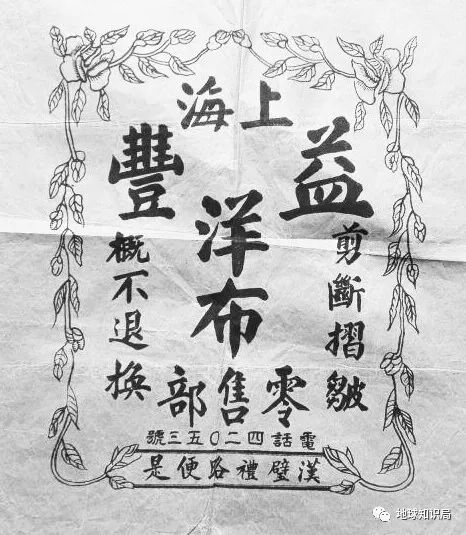 上海
益豐
洋布
剪斷摺皺
概不退換
零售部
電話四二〇五三號
漢璧禮路便是
地球知识局